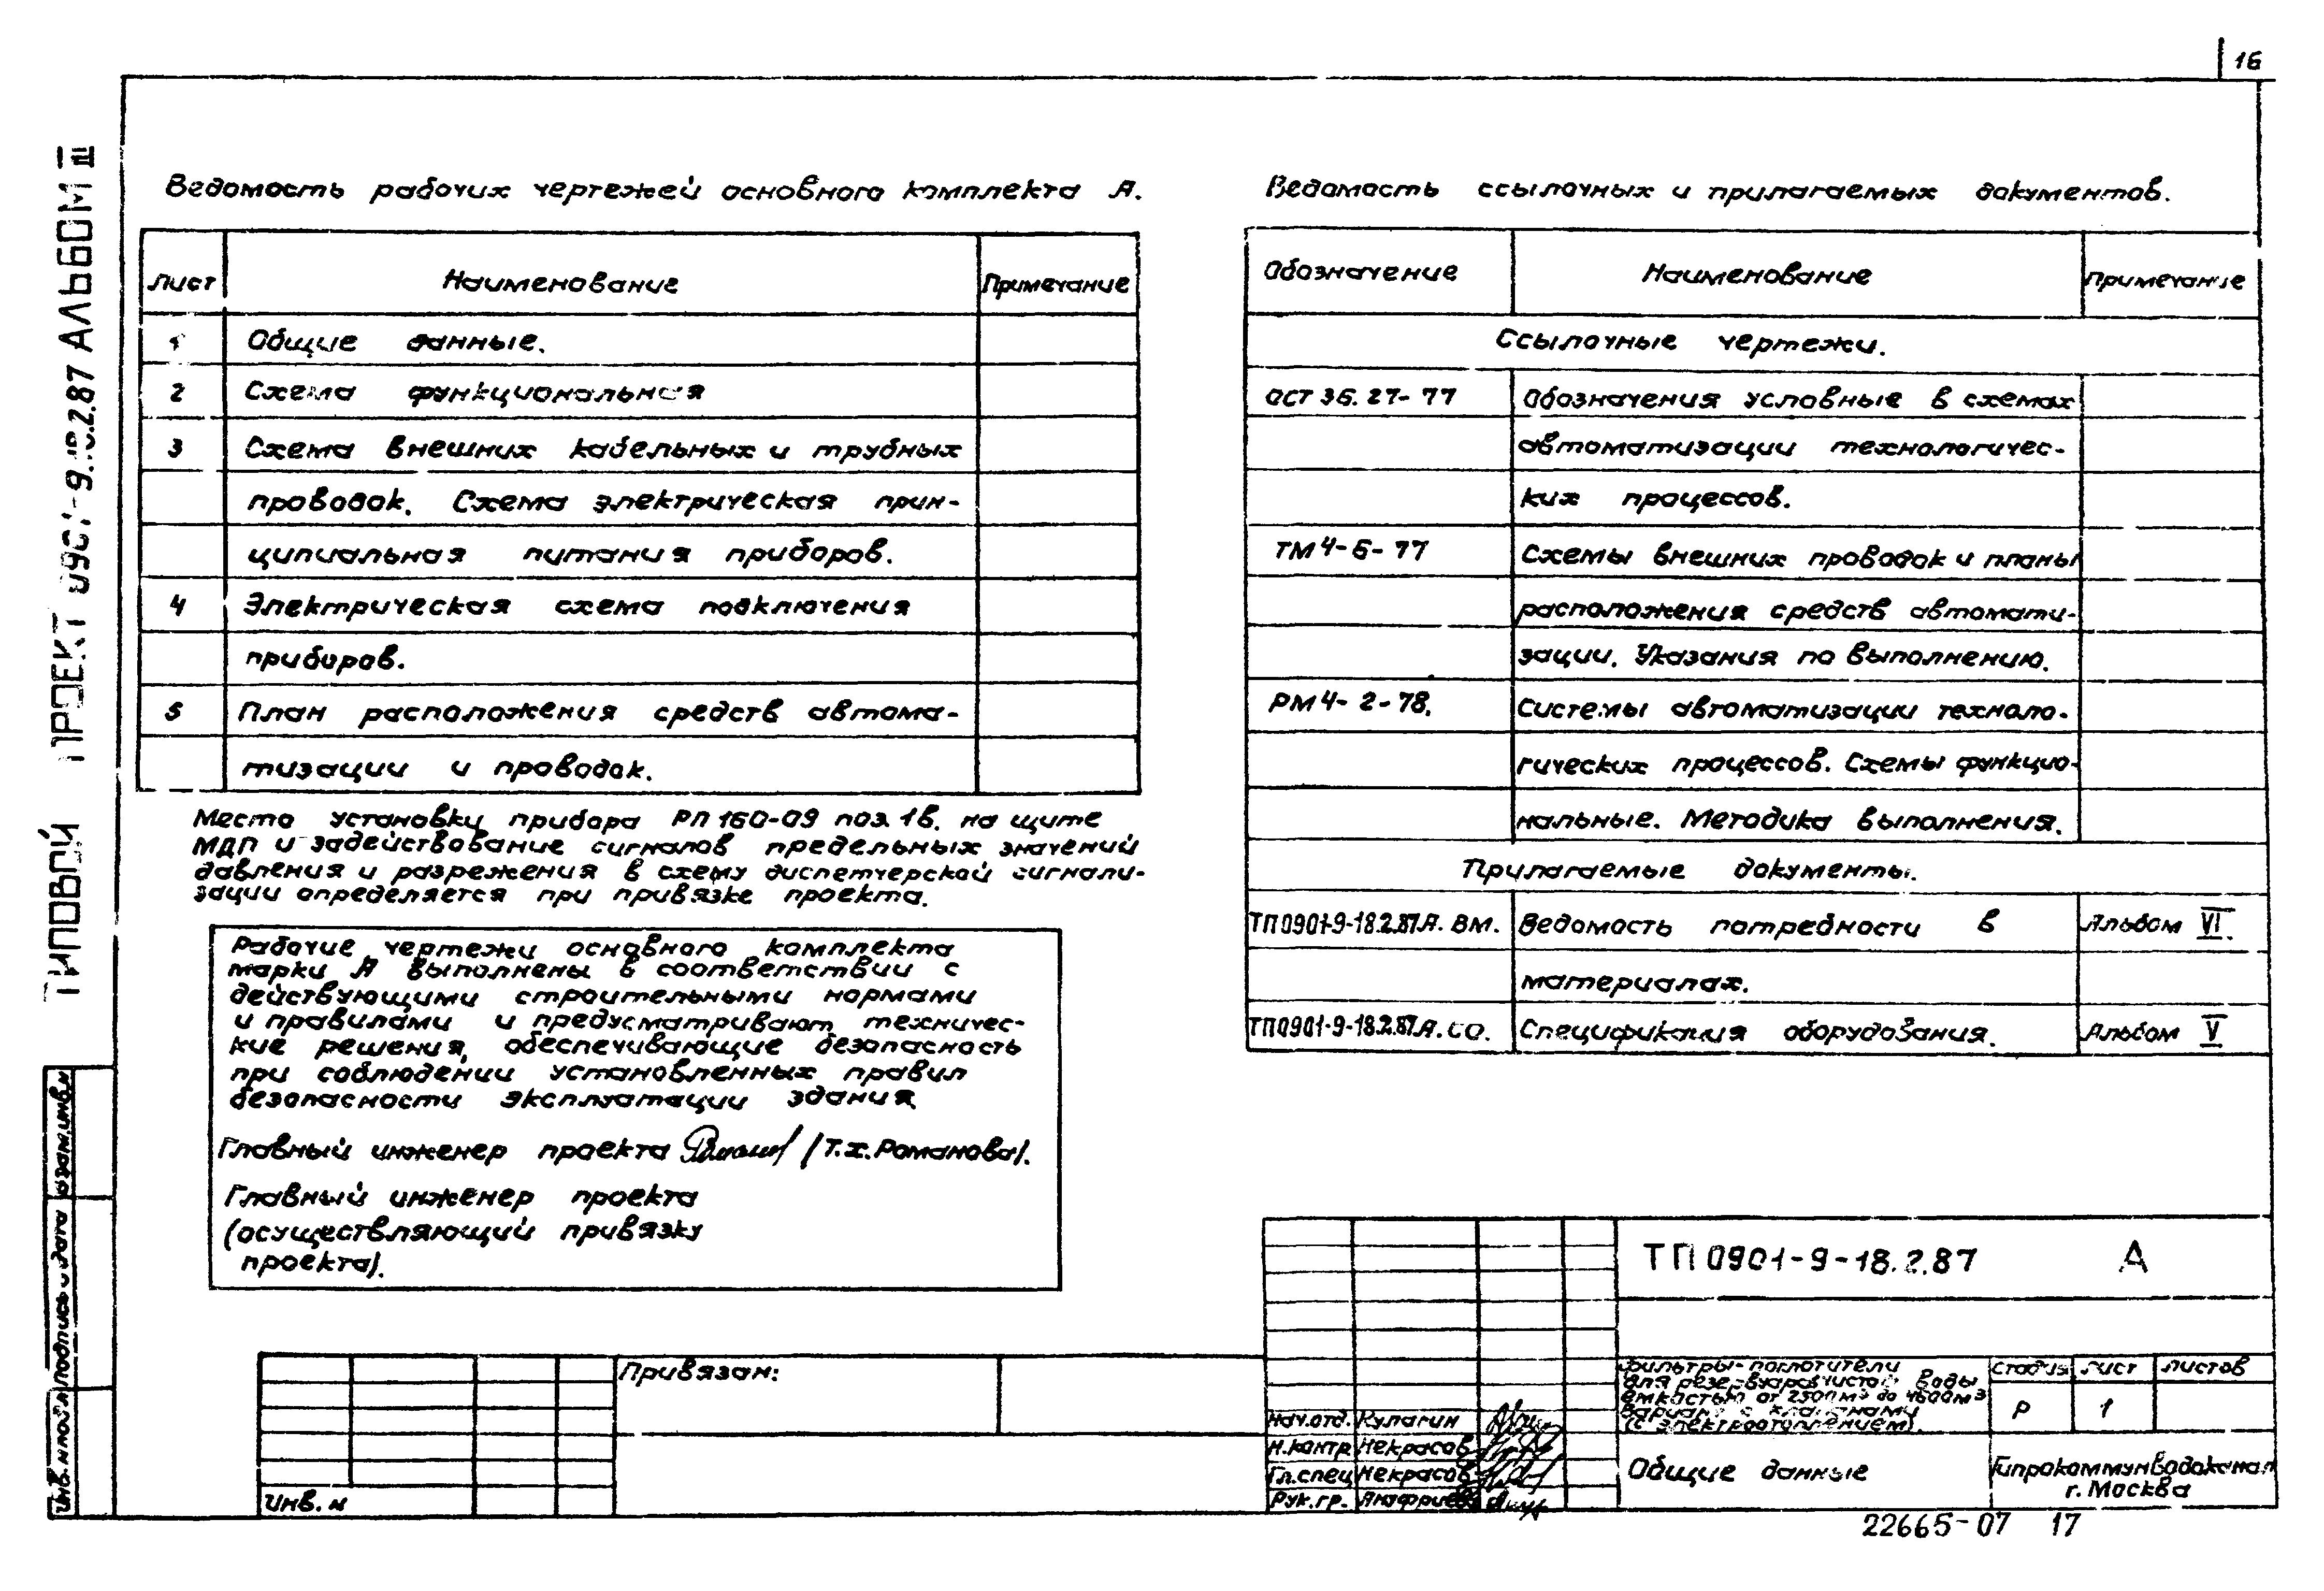 16
ТИПОВОЙ ПРОЕКТ 0901-9-18.2.87 АЛЬБОМ III
Ведомость рабочих чертежей основного комплекта А.
Лист Наименование Примечание
1 Общие данные.
2 Схема функциональная
3 Схема внешних кабельных и трубных
проводок. Схема электрическая прин-
ципиальная питания приборов.
4 Электрическая схема подключения
приборов.
5 План расположения средств автома-
тизации и проводок.
Место установки прибора РП160-09 поз. 1в. на щите
МДП и задействование сигналов предельных значений
давления и разрежения в схему диспетчерской сигнали-
зации определяется при привязке проекта.
Рабочие чертежи основного комплекта
марки А выполнены в соответствии с
действующими строительными нормами
и правилами и предусматривают техничес-
кие решения, обеспечивающие безопасность
при соблюдении установленных правил
безопасности эксплуатации здания
Главный инженер проекта /Т.Х.Романова/.
Главный инженер проекта
(осуществляющий привязку
проекта).
Ведомость ссылочных и прилагаемых документов.
Обозначение Наименование Примечание
Ссылочные чертежи.
ОСТ 36.27-77 Обозначения условные в схемах
автоматизации технологичес-
ких процессов.
ТМ4-6-77 Схемы внешних проводок и планы
расположения средств автомати-
зации. Указания по выполнению.
РМ4-2-78. Системы автоматизации техноло-
гических процессов. Схемы функцио-
нальные. Методика выполнения.
Прилагаемые документы.
ТП0901-9-18.2.87А.ВМ. Ведомость потребности в Альбом VI.
материалах.
ТП0901-9-18.2.87А.СО. Спецификация оборудования. Альбом V
Инв.№подл. Подпись и дата Взам.инв.№
Привязан:
Инв. №
ТП 0901-9-18.2.87 А
Фильтры-поглотители
для резервуаров чистой воды
емкостью от 2500м³ до 4600м³
Вариант с клапанами
(с электроотоплением).
Стадия Лист Листов
Р 1
Нач.отд. Кулагин
Н.контр Некрасов
Гл.спец Некрасов
Рук.гр. Ануфриева
Общие данные
Гипрокоммунводоканал
г. Москва
22665-07 17